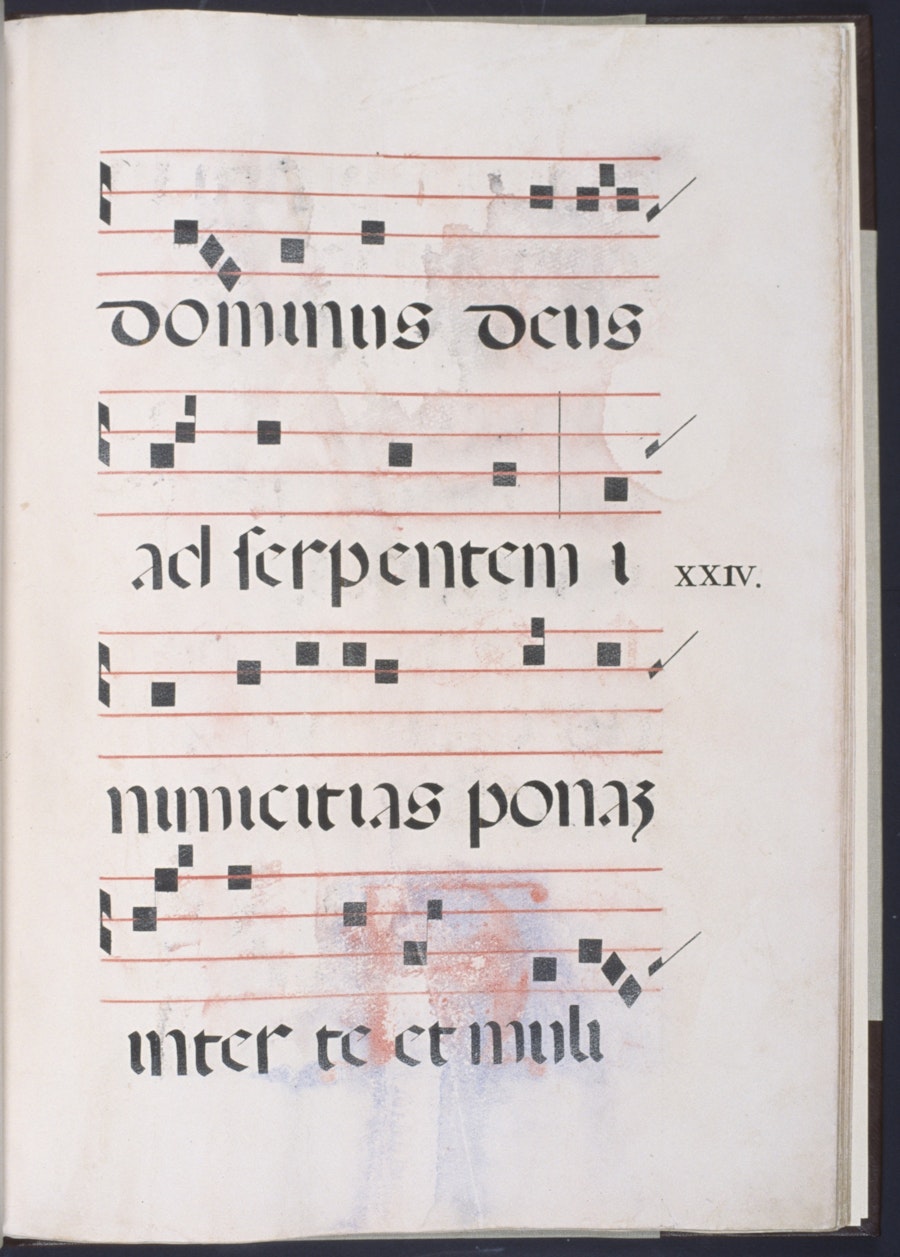 dominus deus
ad serpentem i
XXIV.
nimicitias ponaʒ
inter te et muli